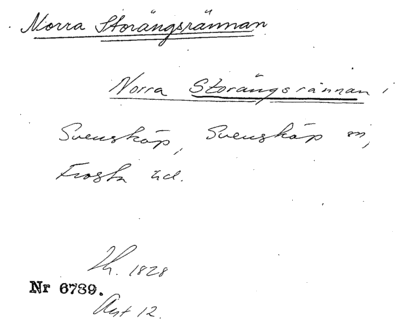 Norra Storängsrännan
Norra Storängsrännan i
Svensköp, Svensköp sn,
Frosta hd.
Lh. 1828
Nr 6789.
Akt 12.